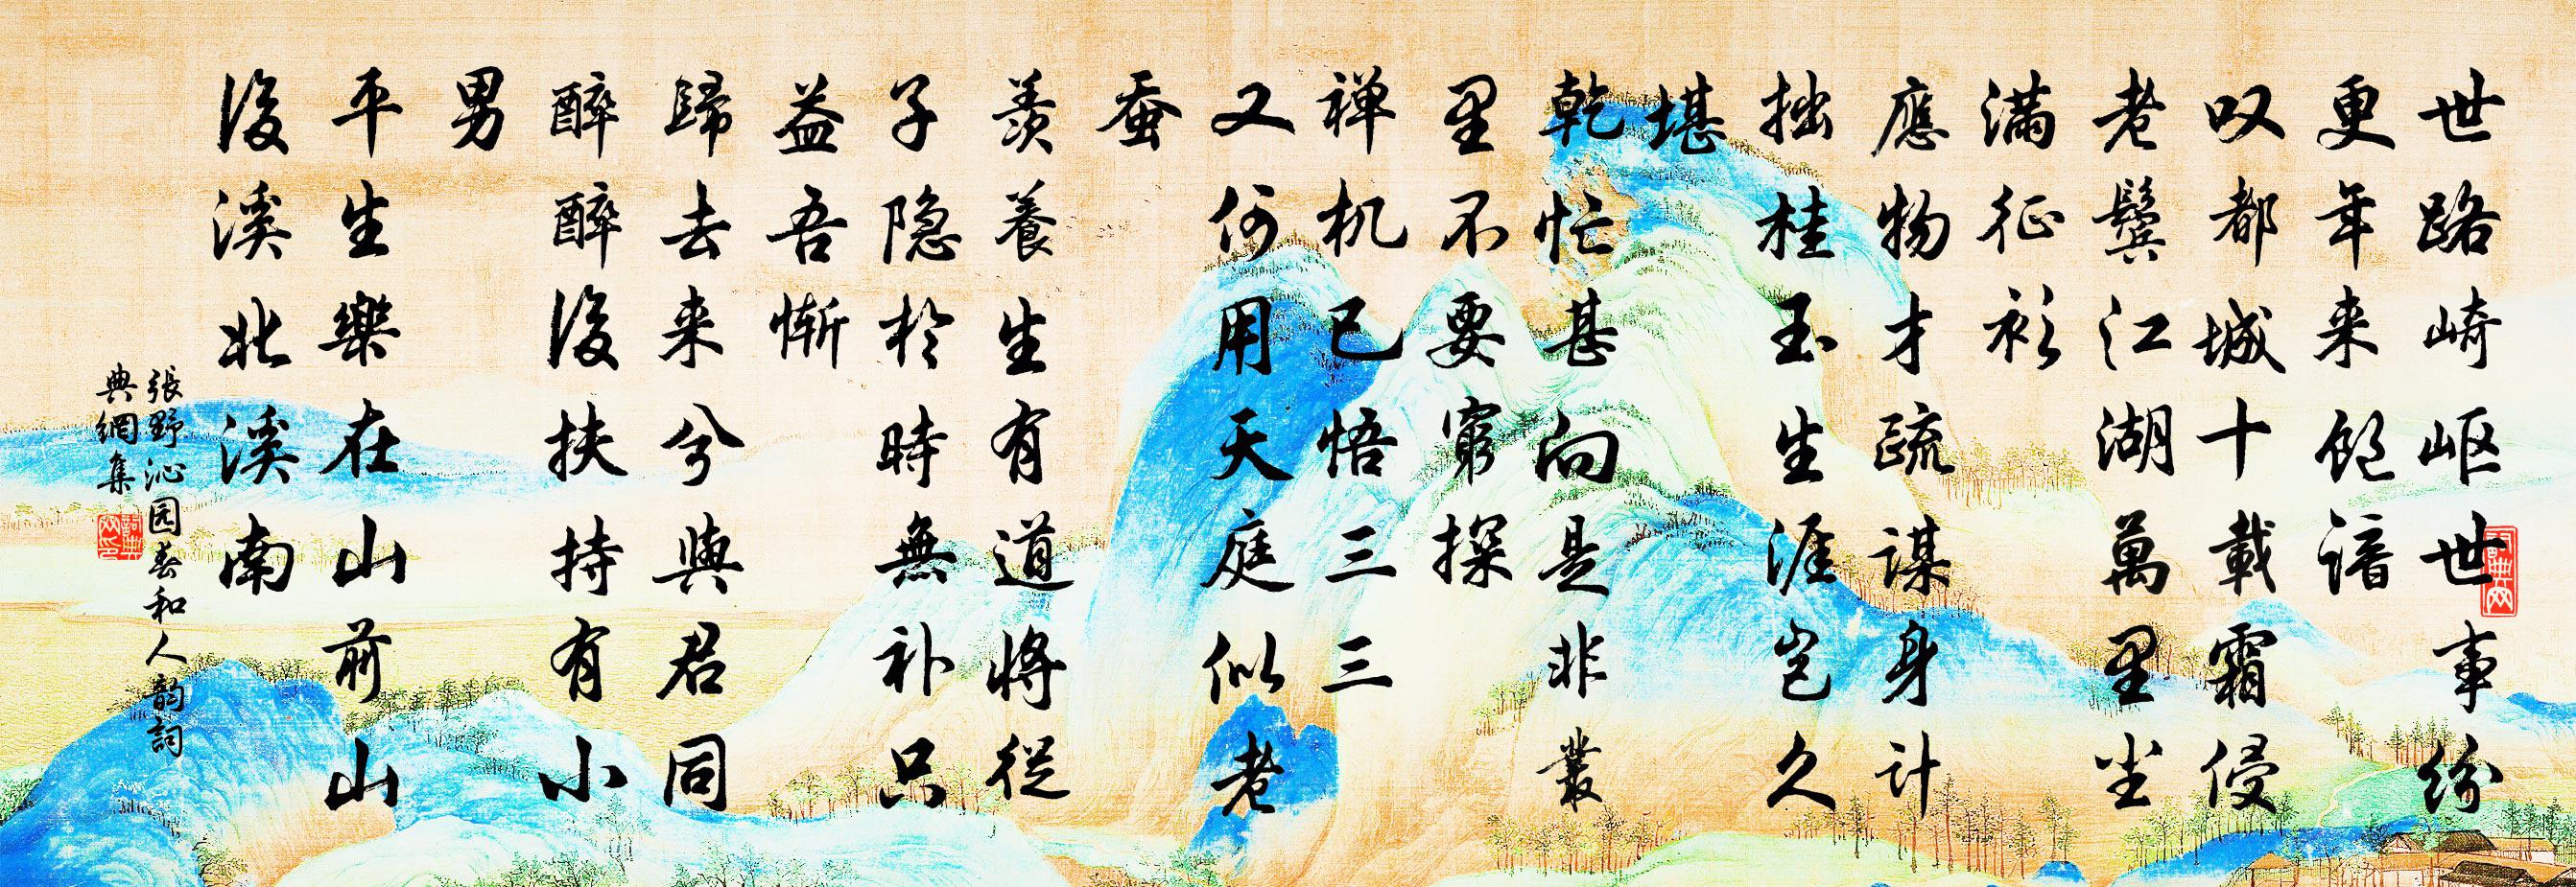 世路崎岖世事纷
更年来饱谙
叹都城十載霜侵
老鬓江湖萬里尘
满征衫
應物才疏謀身计
拙桂玉生涯岂久
堪
乾忙甚向是非叢
里不要窮探
禅机已悟三三
又何用天庭似老
蚕
羨養生有道将從
子隐於時無补只
益吾惭
歸去来兮與君同
醉醉後扶持有小
男
平生樂在山前山
後溪北溪南
張野沁园春和人韵詞
典網集